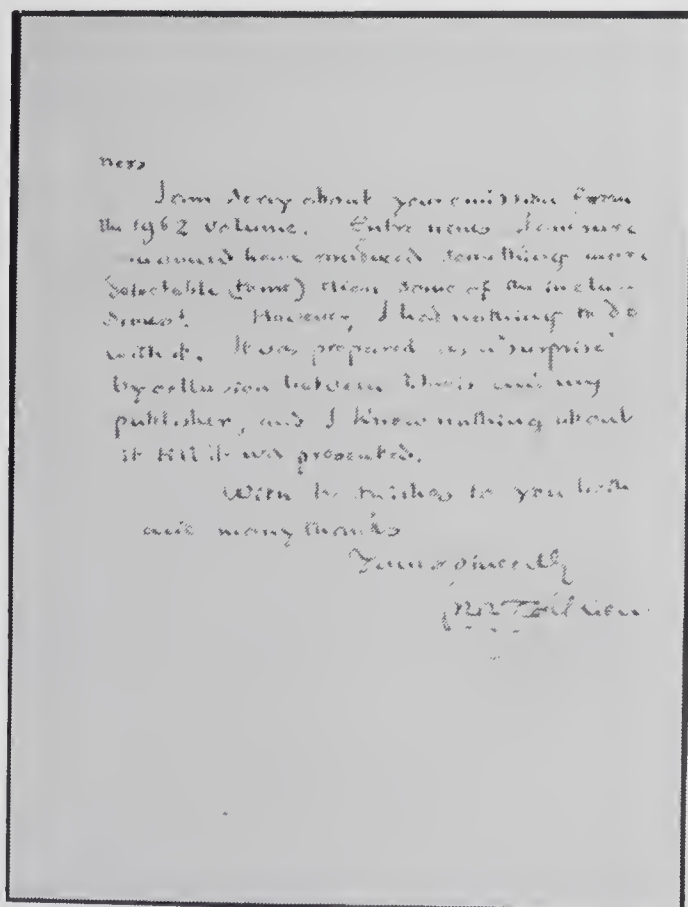 ness
I am sorry about your omission from
the 1962 volume. Entre nous I am sure
would have produced something more
delectable (to me) than some of the inclu-
sions! However, I had nothing to do
with it. It was prepared as a 'surprise'
by collusion between and my
publisher, and I knew nothing about
it till it was presented.
With wishes to you both
and many thanks
Yours sincerely
JRR Tolkien